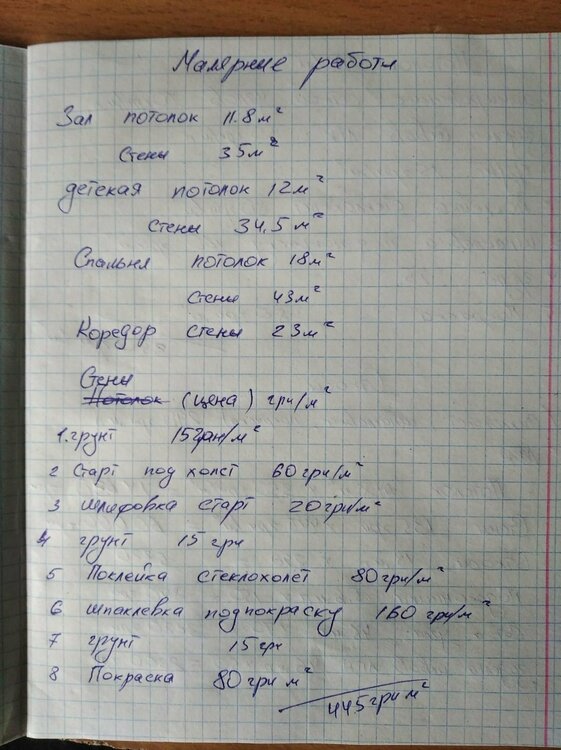 Малярные работы
Зал потолок 11.8 м²
Стены 35 м²
детская потолок 12 м²
Стены 34.5 м²
Спальня потолок 18 м²
Стены 43 м²
Коредор стены 23 м²
Стены
Потолок (цена) грн/м²
1. грунт 15 грн/м²
2 Старт под холст 60 грн/м²
3 шлифовка старт 20 грн/м²
4 грунт 15 грн
5 Поклейка стеклохолст 80 грн/м²
6 шпаклевка подпокраску 160 грн/м²
7 грунт 15 грн
8 Покраска 80 грн м²
445 грн м²